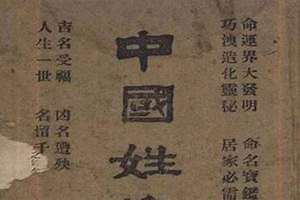 命運界大發明 命名寶鑑
功洩造化靈秘 居家必需
中國姓
吉名受福 凶名遭殃
人生一世 名留千